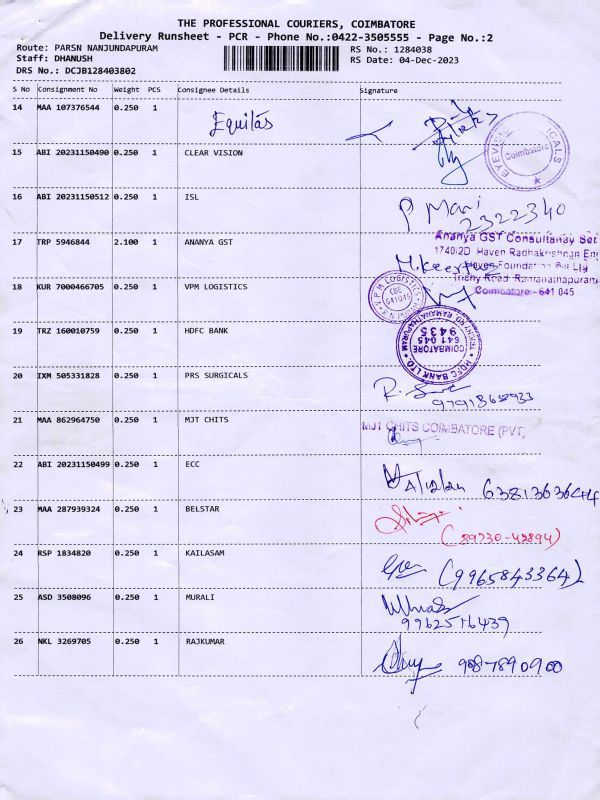 THE PROFESSIONAL COURIERS, COIMBATORE
Delivery Runsheet - PCR - Phone No.:0422-3505555 - Page No.:2
Route: PARSN NANJUNDAPURAM
RS No.: 1284038
Staff: DHANUSH
RS Date: 04-Dec-2023
DRS No.: DCJB128403802
S No Consignment No Weight PCS Consignee Details Signature
14 MAA 107376544 0.250 1 Equitas
15 ABI 20231150490 0.250 1 CLEAR VISION
Coimbatore
16 ABI 20231150512 0.250 1 ISL
P Mari
2322340
17 TRP 5946844 2.100 1 ANANYA GST
Ananya GST Consultancy Ser
1740/2D Haven Radhakrishnan En
Haven Foundation Pvt Ltd
Trichy Road Ramanathapuram
Coimbatore - 641 045
18 KUR 7000466705 0.250 1 VPM LOGISTICS
V.P.M LOGISTICS
CBE
641 045
19 TRZ 160010759 0.250 1 HDFC BANK
HDFC BANK LTD.
TRICHY RD RAMANATHAPURAM
COIMBATORE
641 045
9435
20 IXM 505331828 0.250 1 PRS SURGICALS
21 MAA 862964750 0.250 1 MJT CHITS
MJT CHITS COIMBATORE (PVT)
22 ABI 20231150499 0.250 1 ECC
23 MAA 287939324 0.250 1 BELSTAR
(89730-42894)
24 RSP 1834820 0.250 1 KAILASAM
(9965843364)
25 ASD 3508096 0.250 1 MURALI
9962516439
26 NKL 3269705 0.250 1 RAJKUMAR
9087890900